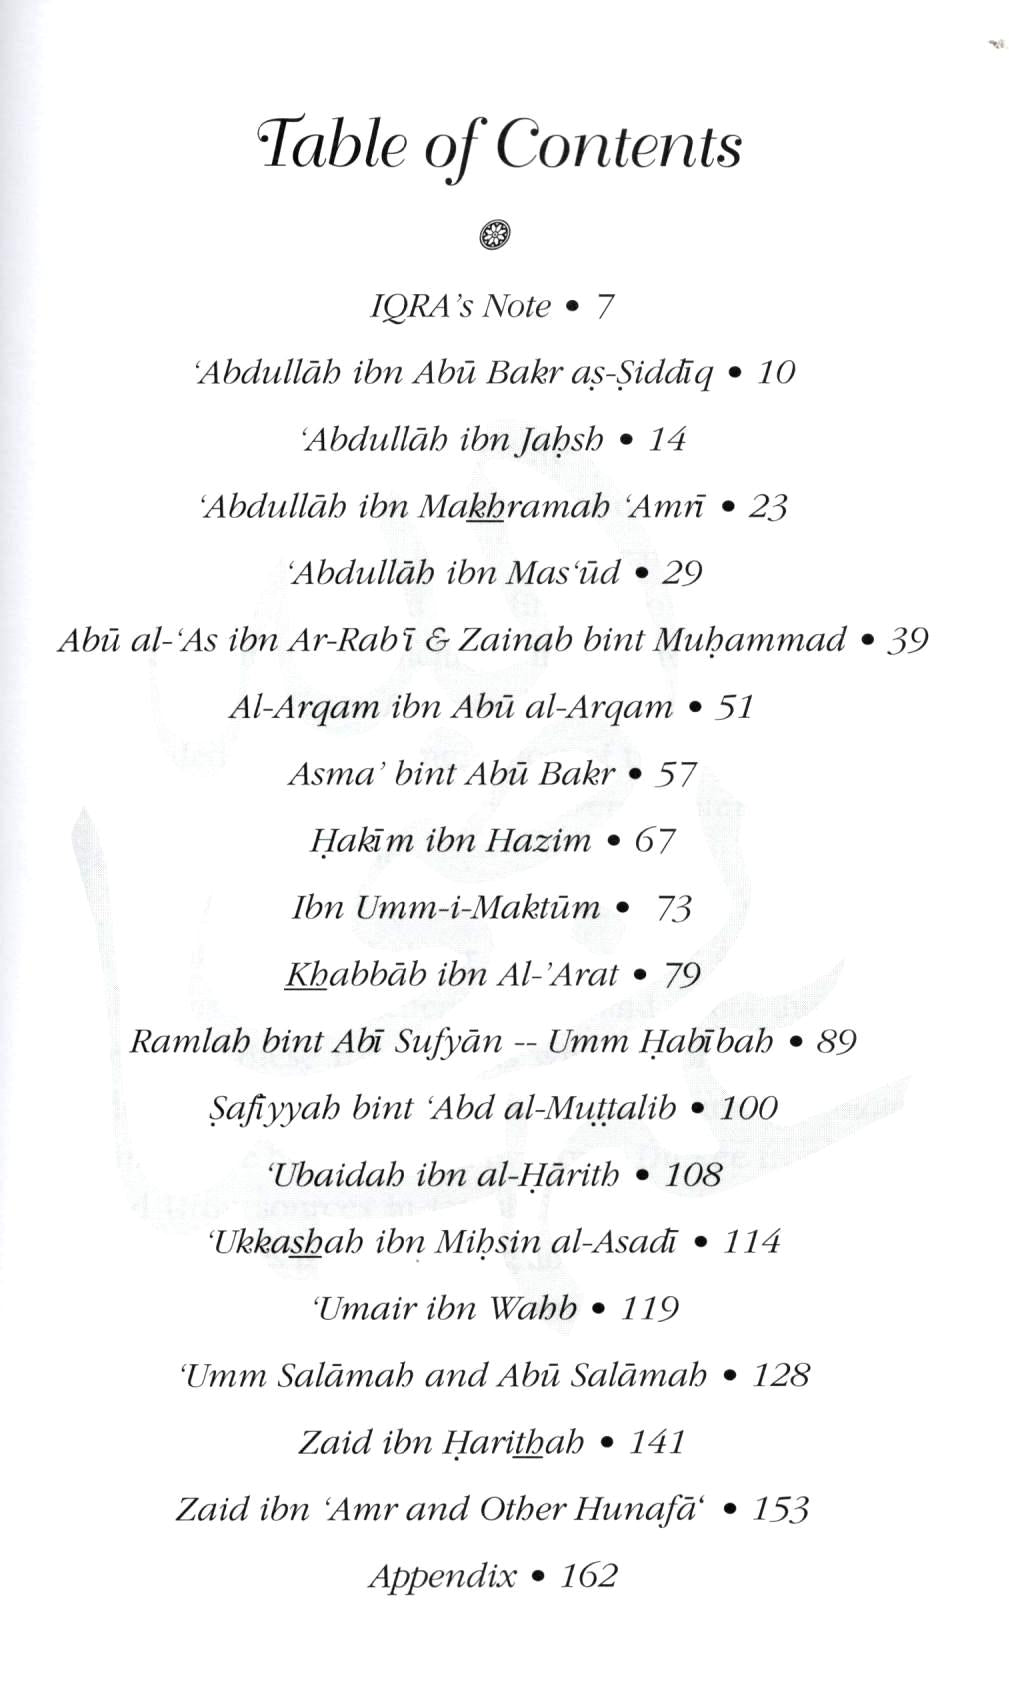 Table of Contents
IQRA's Note • 7
‘Abdullāh ibn Abū Bakr aṣ-Ṣiddīq • 10
‘Abdullāh ibn Jaḥsh • 14
‘Abdullāh ibn Makhramah ‘Amrī • 23
‘Abdullāh ibn Mas‘ūd • 29
Abū al-‘As ibn Ar-Rab‘ī & Zainab bint Muḥammad • 39
Al-Arqam ibn Abū al-Arqam • 51
Asma’ bint Abū Bakr • 57
Ḥakīm ibn Hazim • 67
Ibn Umm-i-Maktūm • 73
Khabbāb ibn Al-’Arat • 79
Ramlah bint Abī Sufyān -- Umm Ḥabībah • 89
Ṣafīyyah bint ‘Abd al-Muṭṭalib • 100
‘Ubaidah ibn al-Ḥārith • 108
‘Ukkashah ibn Miḥsin al-Asadī • 114
‘Umair ibn Wahb • 119
‘Umm Salāmah and Abū Salāmah • 128
Zaid ibn Ḥarithah • 141
Zaid ibn ‘Amr and Other Hunafā‘ • 153
Appendix • 162